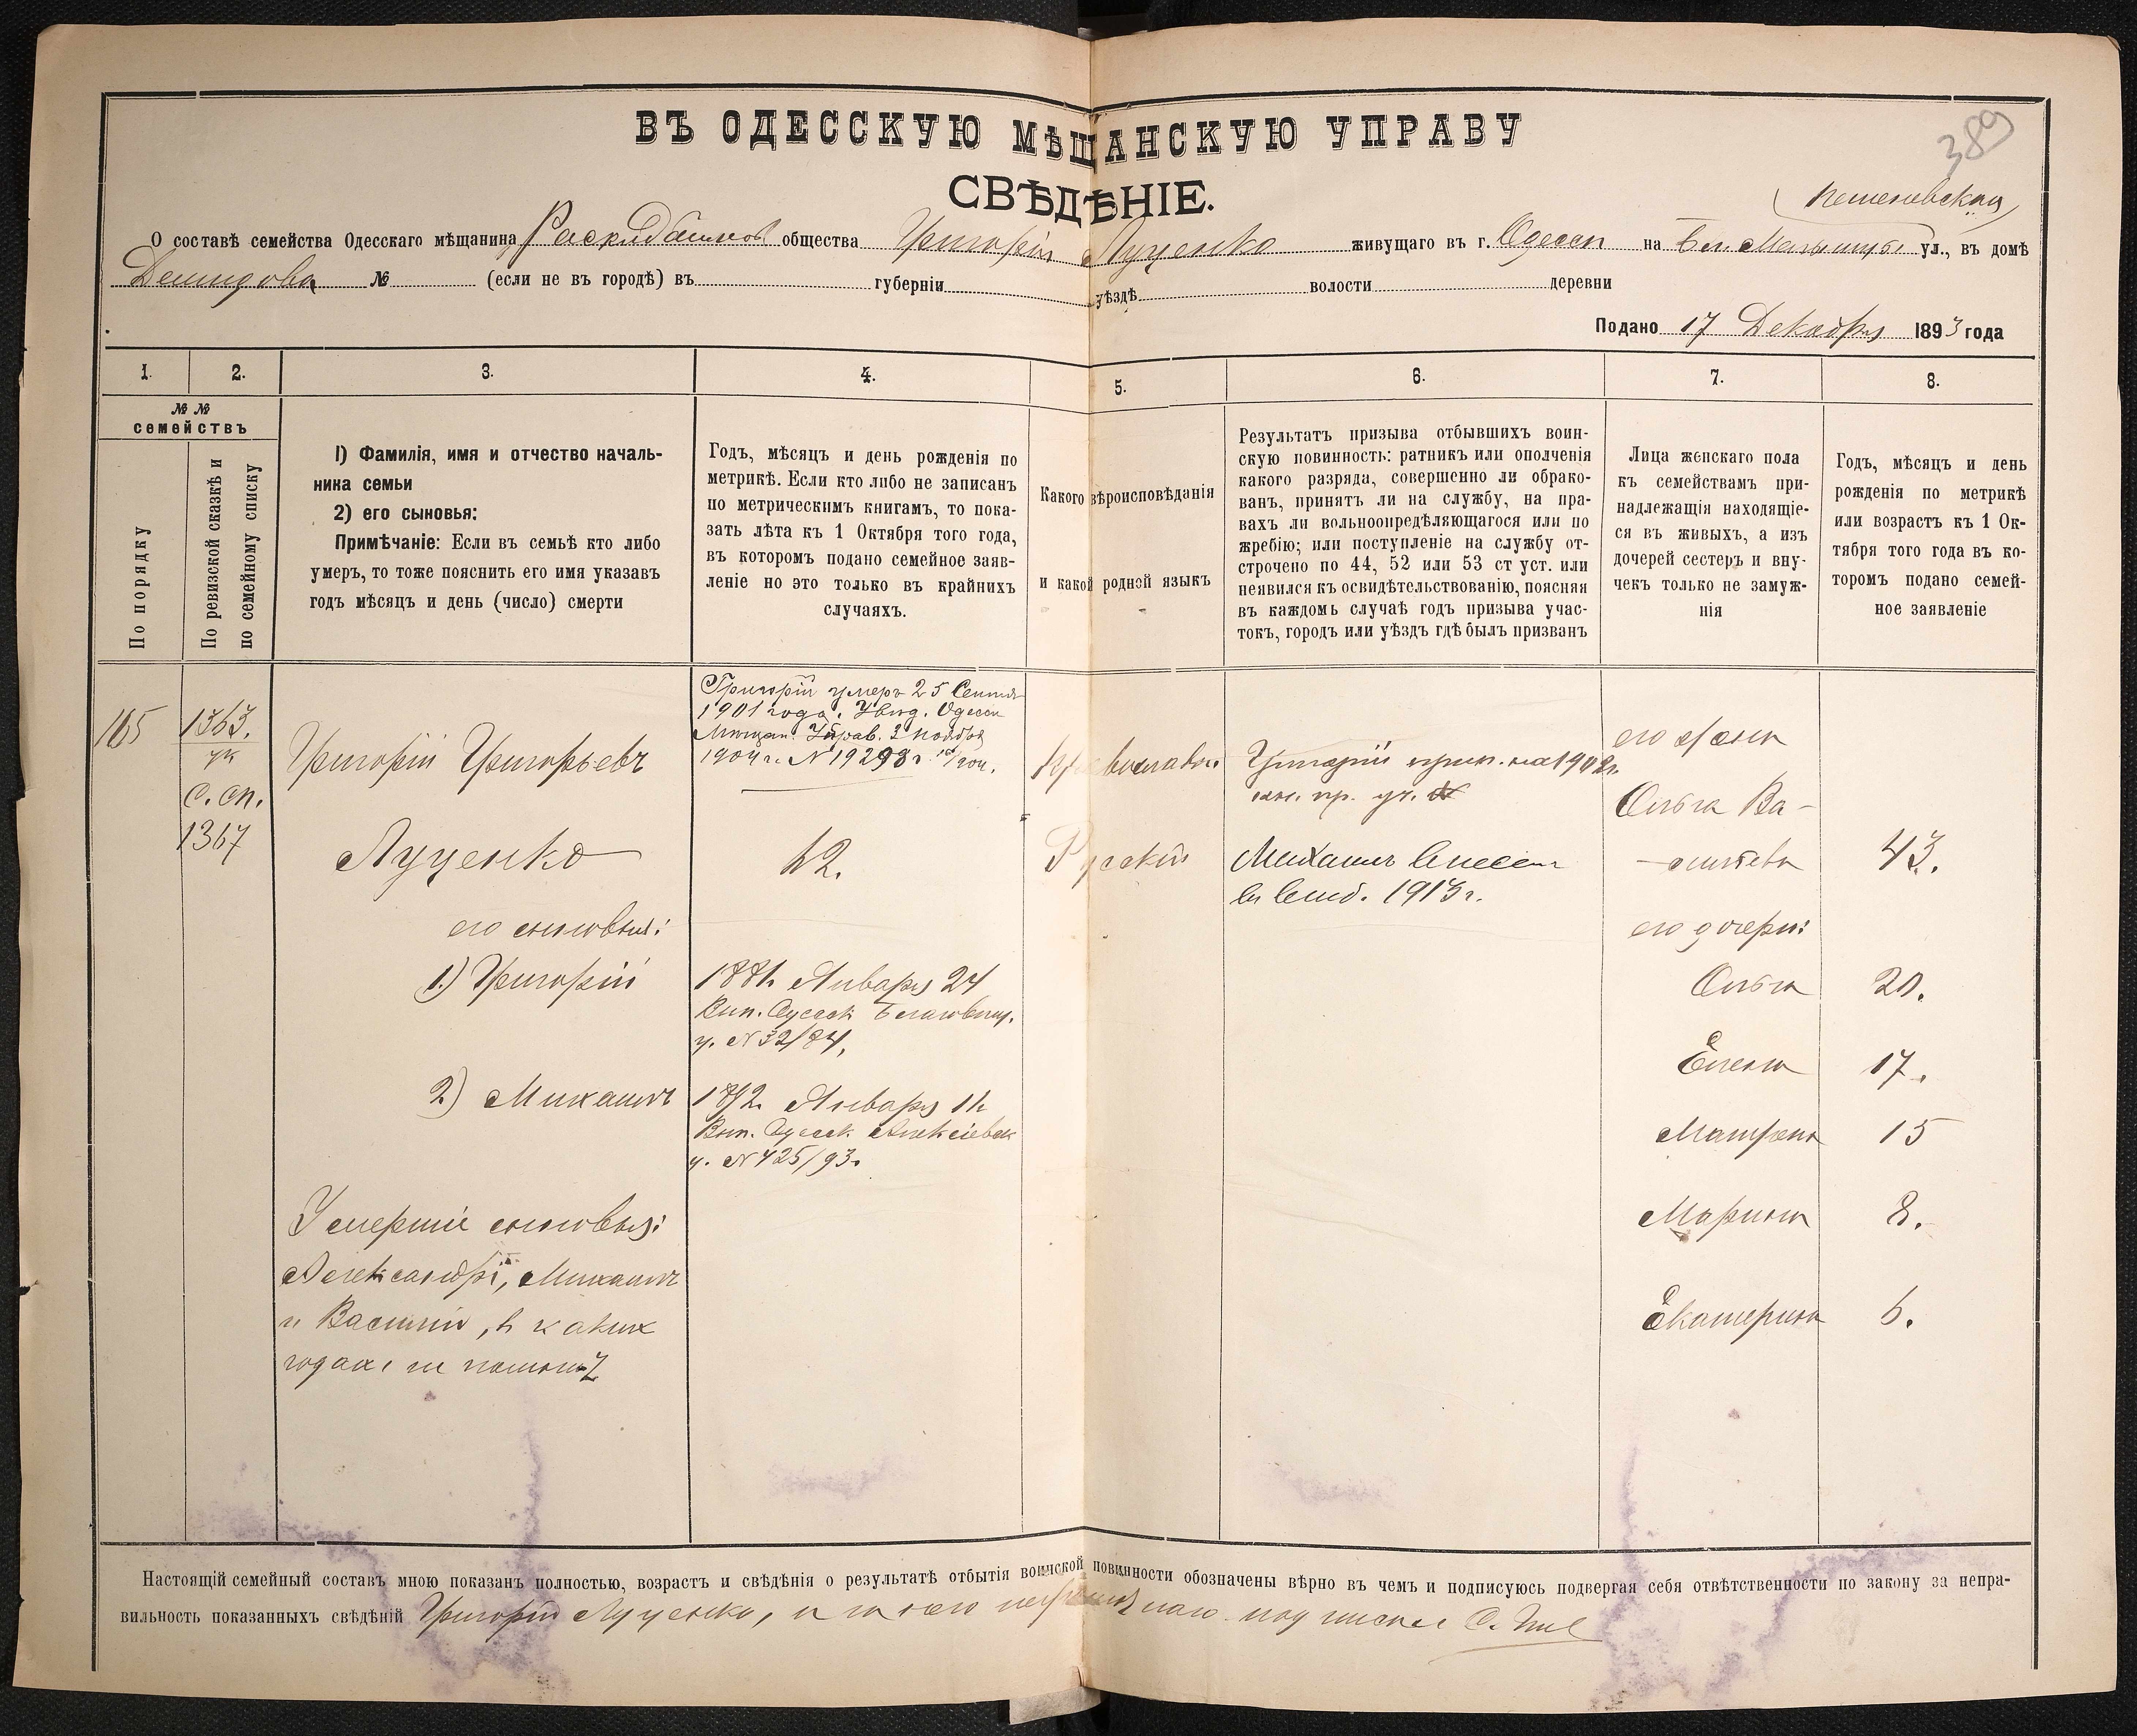 389
ВЪ ОДЕССКУЮ МѢЩАНСКУЮ УПРАВУ
СВѢДѢНІЕ.
О составѣ семейства Одесскаго мѣщанина общества Григорій Луценко живущаго въ г. Одессѣ на ул., въ домѣ
Демидова № (если не въ городѣ) въ губерніи уѣздѣ волости деревни
Подано 17 Декабря 1893 года
1. 2. 3. 4. 5. 6. 7. 8.
№ №
семействъ
По порядку
По ревизской сказкѣ и
по семейному списку
1) Фамилія, имя и отчество началь-
ника семьи
2) его сыновья:
Примѣчаніе: Если въ семьѣ кто либо
умеръ, то тоже пояснить его имя указавъ
годъ мѣсяцъ и день (число) смерти
Годъ, мѣсяцъ и день рожденія по
метрикѣ. Если кто либо не записанъ
по метрическимъ книгамъ, то пока-
зать лѣта къ 1 Октября того года,
въ которомъ подано семейное заяв-
леніе но это только въ крайнихъ
случаяхъ.
Какого вѣроисповѣданія
и какой родной языкъ
Результатъ призыва отбывшихъ воин-
скую повинность: ратникъ или ополченія
какого разряда, совершенно ли обрако-
ванъ, принятъ ли на службу, на пра-
вахъ ли вольноопредѣляющагося или по
жребію; или поступленіе на службу от-
строчено по 44, 52 или 53 ст уст. или
неявился къ освидѣтельствованію, поясняя
въ каждомъ случаѣ годъ призыва учас-
токъ, городъ или уѣздъ гдѣ былъ призванъ
Лица женскаго пола
къ семействамъ при-
надлежащія находящіе-
ся въ живыхъ, а изъ
дочерей сестеръ и вну-
чекъ только не замуж-
нія
Годъ, мѣсяцъ и день
рожденія по метрикѣ
или возрастъ къ 1 Ок-
тября того года въ ко-
торомъ подано семей-
ное заявленіе
165
1363.
С. сп.
1367
Григорій Григорьевъ
Луценко
его сыновья:
1.) Григорій
2.) Михаилъ
Умершіе сыновья:
Александръ, Михаилъ
и Василій, в какихъ
годахъ не помнитъ
Григорій умеръ 25 Сентя
1901 года. Увѣд. Одесск
Мѣщан. Управ. 2 ноября
1904 г. № 19298
62.
1881 Января 24
Вып. Одесск Благовѣщ.
ц. № 32/84.
1892 Января 11
Вып. Одесск. Алексѣевск
ц. № 425/93.
Православн.
Русскій
Григорій приз. на 1902 г.
Михаилъ внесен
въ 1913 г.
его жена
Ольга Ва-
сильева 43.
его дочери:
Ольга 20.
Елена 17.
Матрена 15
Марина 8.
Екатерина 6.
Настоящій семейный составъ мною показанъ полностью, возрастъ и свѣдѣнія о результатѣ отбытія воинской повинности обозначены вѣрно въ чемъ и подписуюсь подвергая себя отвѣтственности по закону за непра-
вильность показанныхъ свѣдѣній Григорій Луценко, а за него неграмотнаго подписал